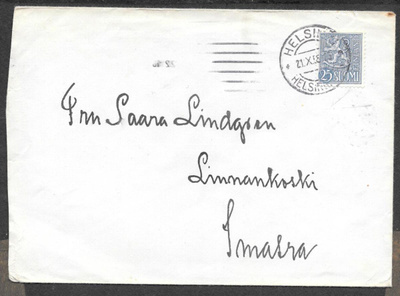 HELSINKI
21.X.58
HELSINGFORS
25 SUOMI
Fru Saara Lindgren
Linnankoski
Imatra